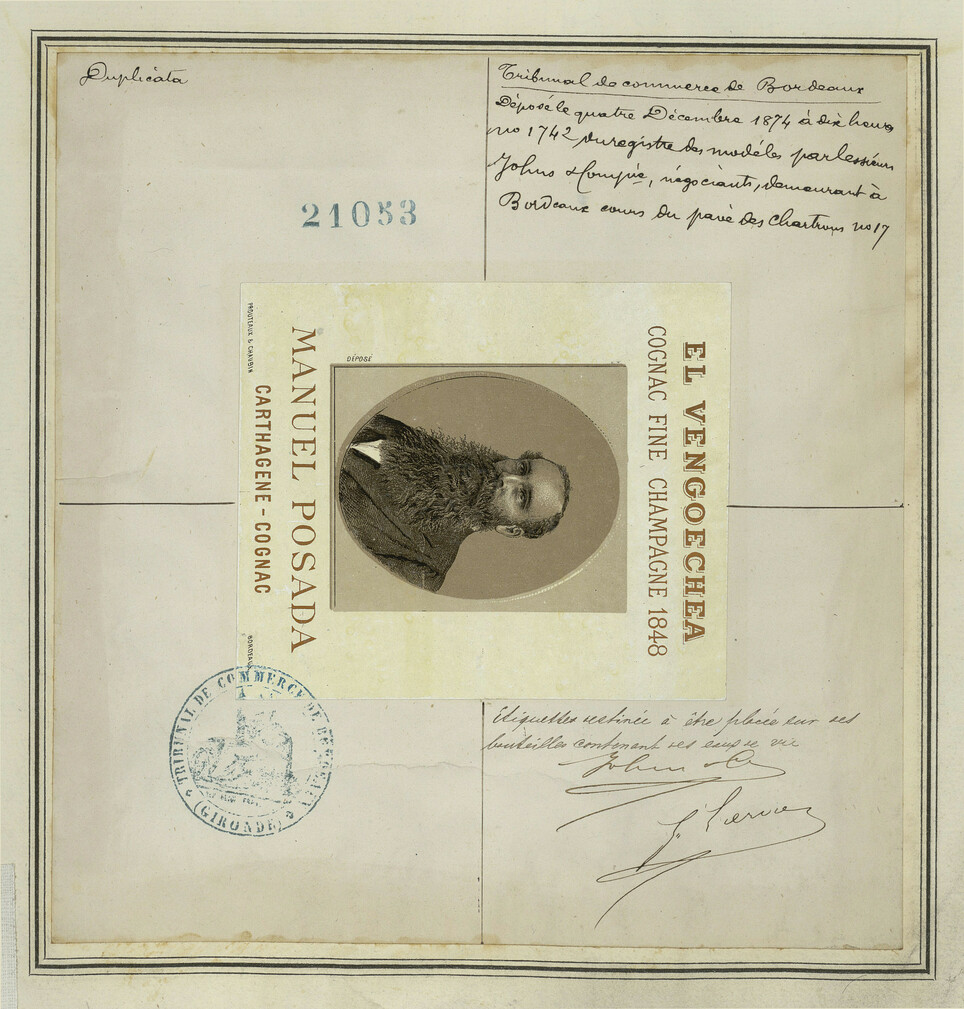 Duplicata
Tribunal de commerce de Bordeaux
Déposé le quatre Décembre 1874 à dix heures
no 1742 du registre des modèles par les sieurs
Johns & Compie, négociants, demeurant à
Bordeaux cours du pavé des Chartrons no 17
21053
EL VENGOECHEA
COGNAC FINE CHAMPAGNE 1848
DÉPOSÉ
MANUEL POSADA
CARTHAGENE-COGNAC
PROUTEAUX & CHAUBIN
BORDEAUX
TRIBUNAL DE COMMERCE DE BORDEAUX
(GIRONDE)
Etiquettes destinée à être placée sur ses
bouteilles contenant ses eaux de vie
John & Ce